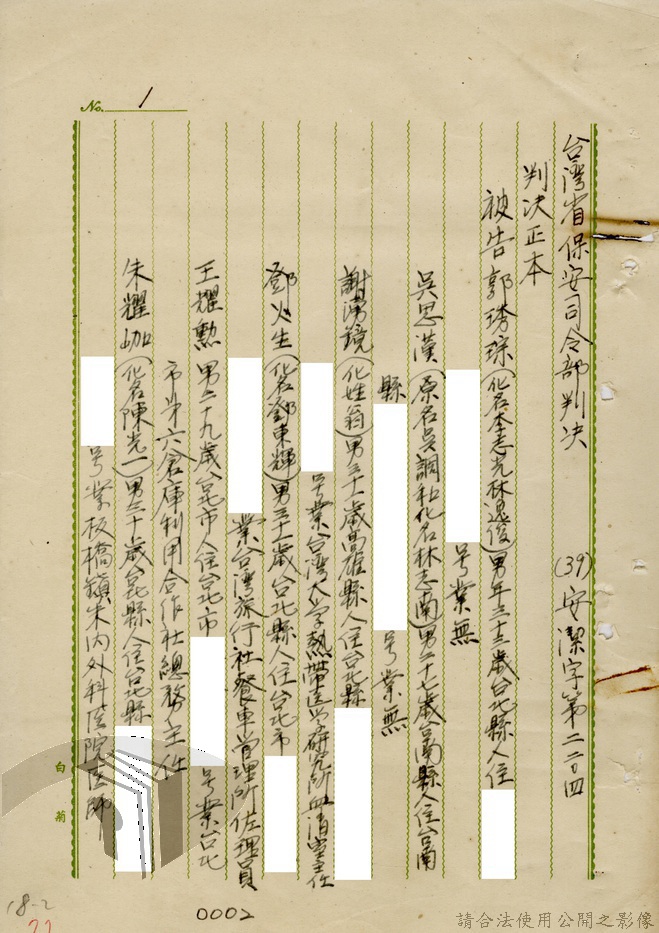 No. 1
台湾省保安司令部判决
(39)安潔字第二二〇四
判决正本
被告 郭琇琮(化名李志光林逸俊)男年三十三歲台北縣人住
号業無
吳思漢(原名吳調和化名林志南)男二十七歲台南縣人住台南
縣
号業無
謝湧鏡(化姓翁)男三十一歲高雄縣人住台北縣
号業台湾大学熱帶医学研究所血清室主任
鄧火生(化名鄧東輝)男三十一歲台北縣人住台北市
業台湾旅行社餐車管理所佐理員
王耀勲 男二十九歲台北市人住台北市
号業台北
市第六倉庫利用合作社總務主任
朱耀咖(化名陳光一)男三十歲台北縣人住台北縣
号業板橋鎮朱内外科医院医師
白
菊
18-2
0002
請合法使用公開之影像